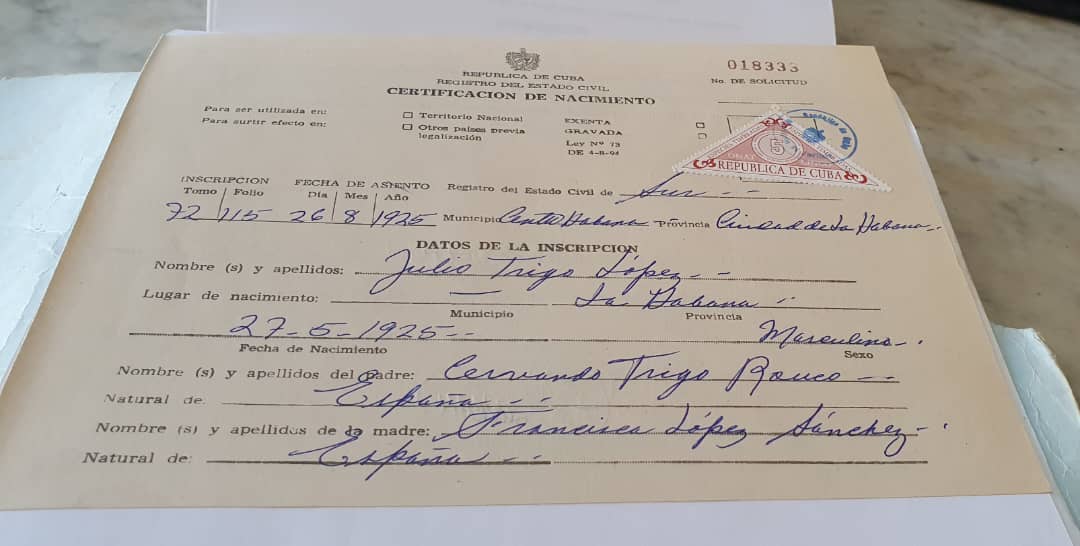 REPUBLICA DE CUBA
REGISTRO DEL ESTADO CIVIL
CERTIFICACION DE NACIMIENTO
018333
No. DE SOLICITUD
Para ser utilizada en:
Para surtir efecto en:
Territorio Nacional
Otros países previa legalización
EXENTA
GRAVADA
Ley Nº 73
DE 4-8-94
ONAT
5
REPUBLICA DE CUBA
INSCRIPCION FECHA DE ASIENTO Registro del Estado Civil de Sur
Tomo Folio Día Mes Año
72 115 26 8 1925 Municipio Centro Habana Provincia Ciudad de La Habana
DATOS DE LA INSCRIPCION
Nombre (s) y apellidos: Julio Trigo López
Lugar de nacimiento: — La Habana
Municipio Provincia
27-5-1925 Masculino
Fecha de Nacimiento Sexo
Nombre (s) y apellidos del padre: Cervando Trigo Rouco
Natural de: España
Nombre (s) y apellidos de la madre: Francisca López Sánchez
Natural de: España